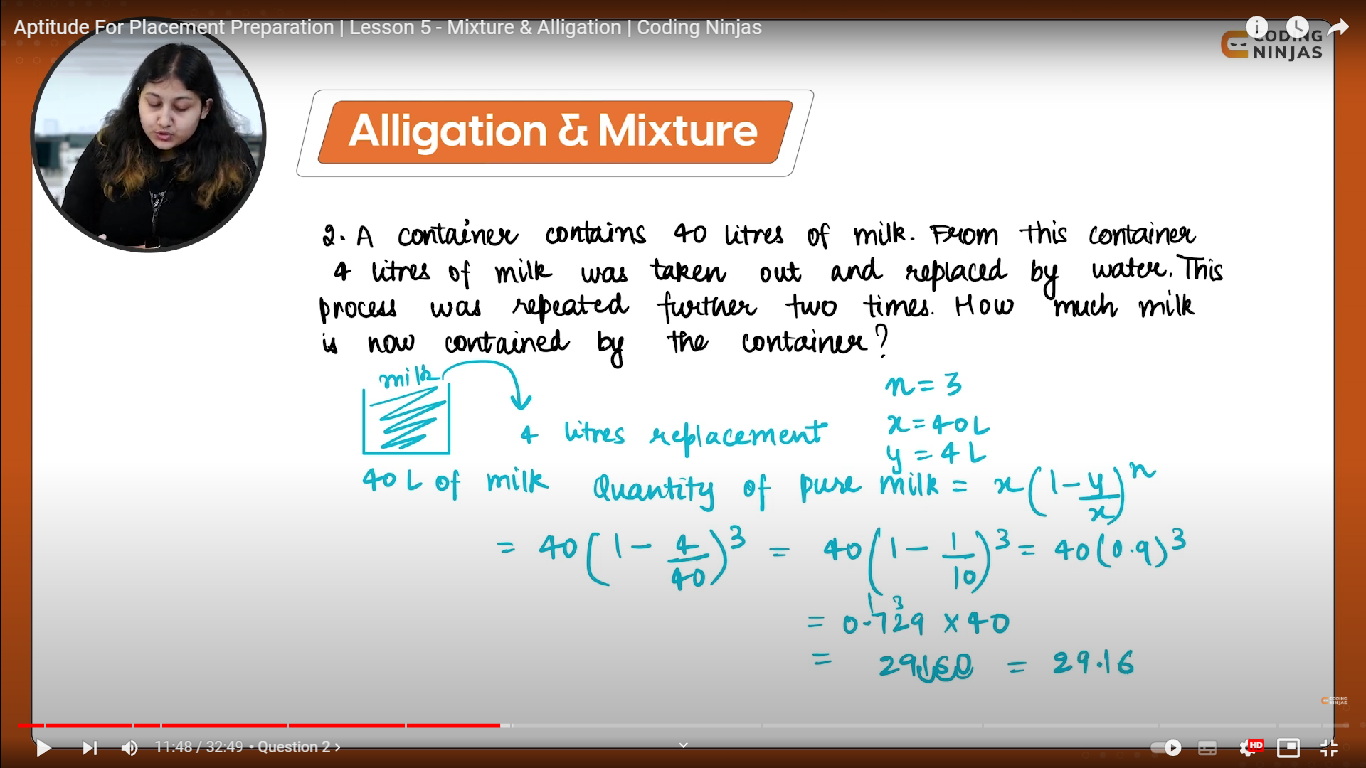 Aptitude For Placement Preparation | Lesson 5 - Mixture & Alligation | Coding Ninjas
CODING
NINJAS
Alligation & Mixture
2. A container contains 40 litres of milk. From this container
4 litres of milk was taken out and replaced by water. This
process was repeated further two times. How much milk
is now contained by the container?
milk
n = 3
4 litres replacement
x = 40L
y = 4 L
40 L of milk
Quantity of pure milk = x(1 - y/x)^n
= 40(1 - 4/40)^3 = 40(1 - 1/10)^3 = 40(0.9)^3
1 3
= 0.729 × 40
= 29160 = 29.16
CODING
NINJAS
11:48 / 32:49 • Question 2 >
HD